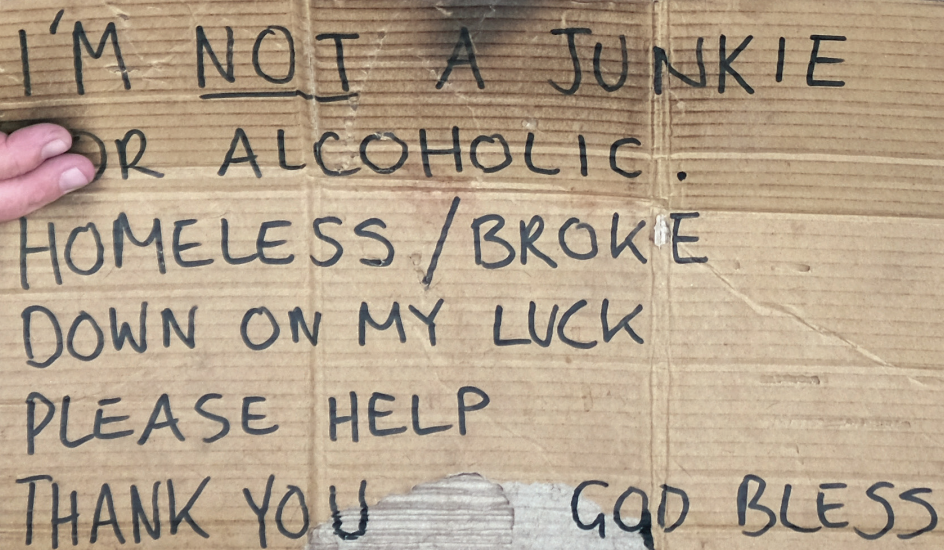 I'M NOT A JUNKIE
OR ALCOHOLIC.
HOMELESS/BROKE
DOWN ON MY LUCK
PLEASE HELP
THANK YOU GOD BLESS